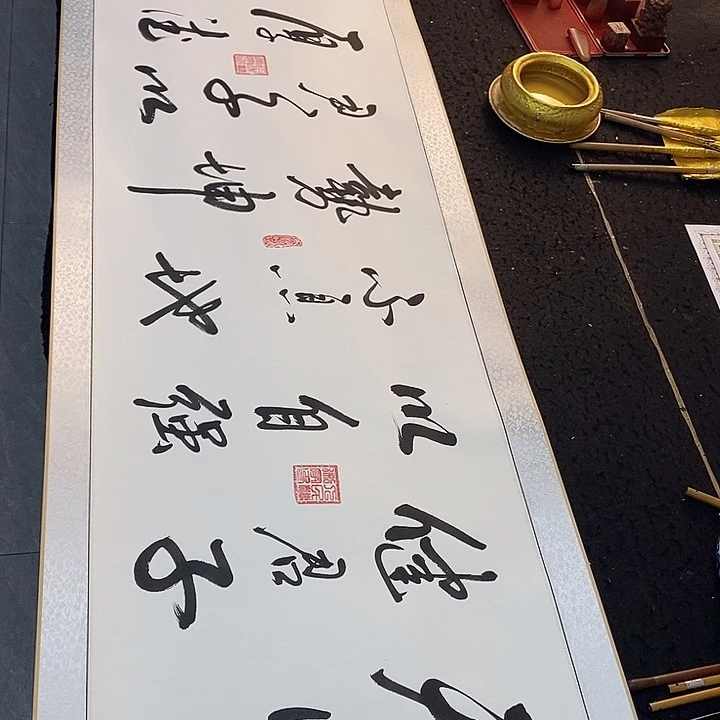 健君子
以自强
不息地
势坤
君子以
厚德